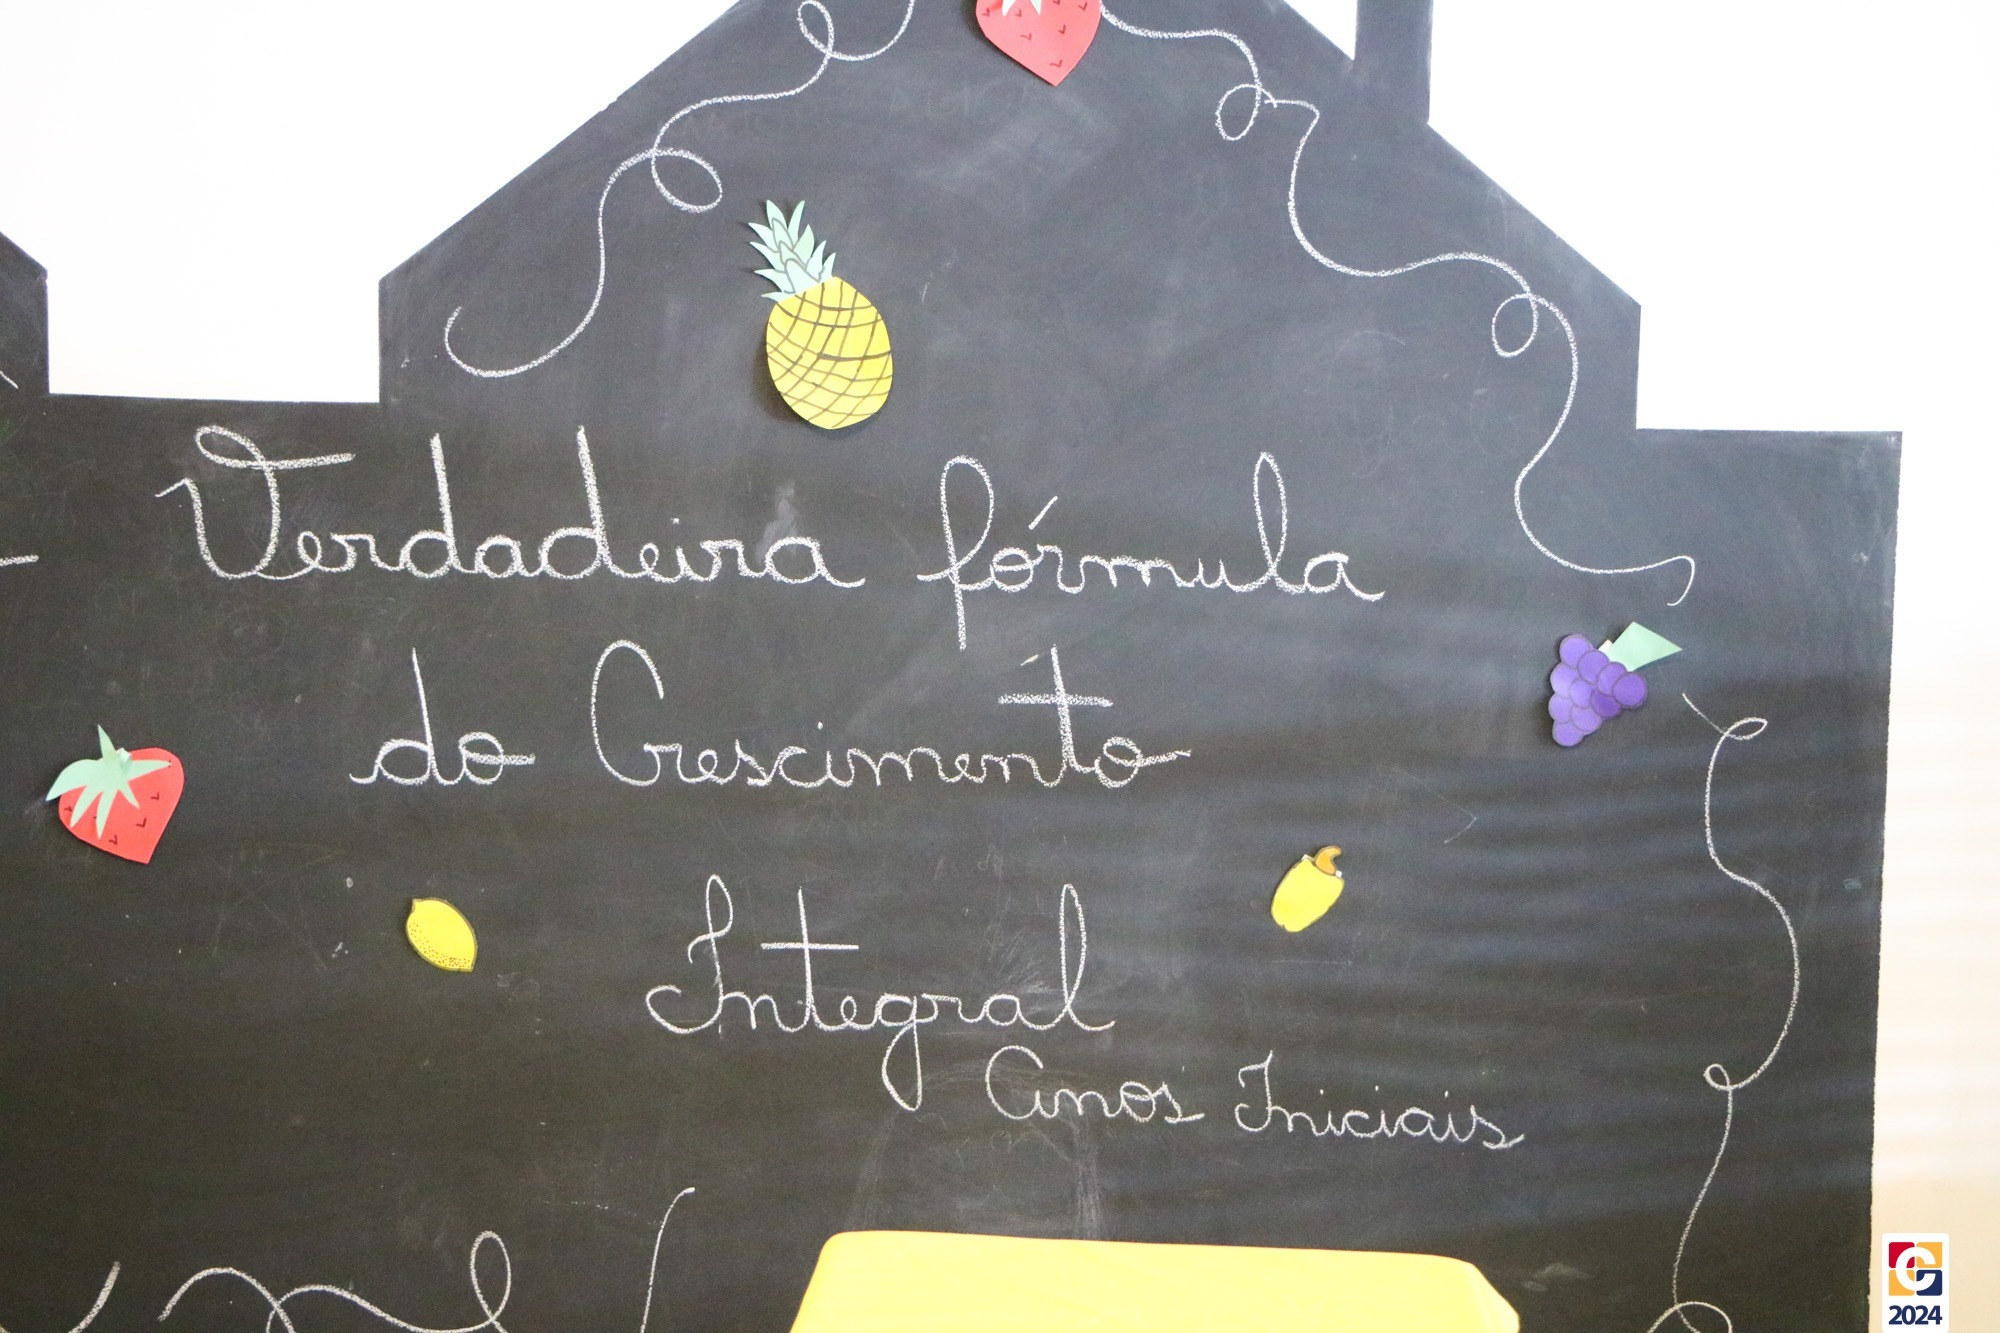 Verdadeira fórmula
do Crescimento
Integral
Anos Iniciais
2024